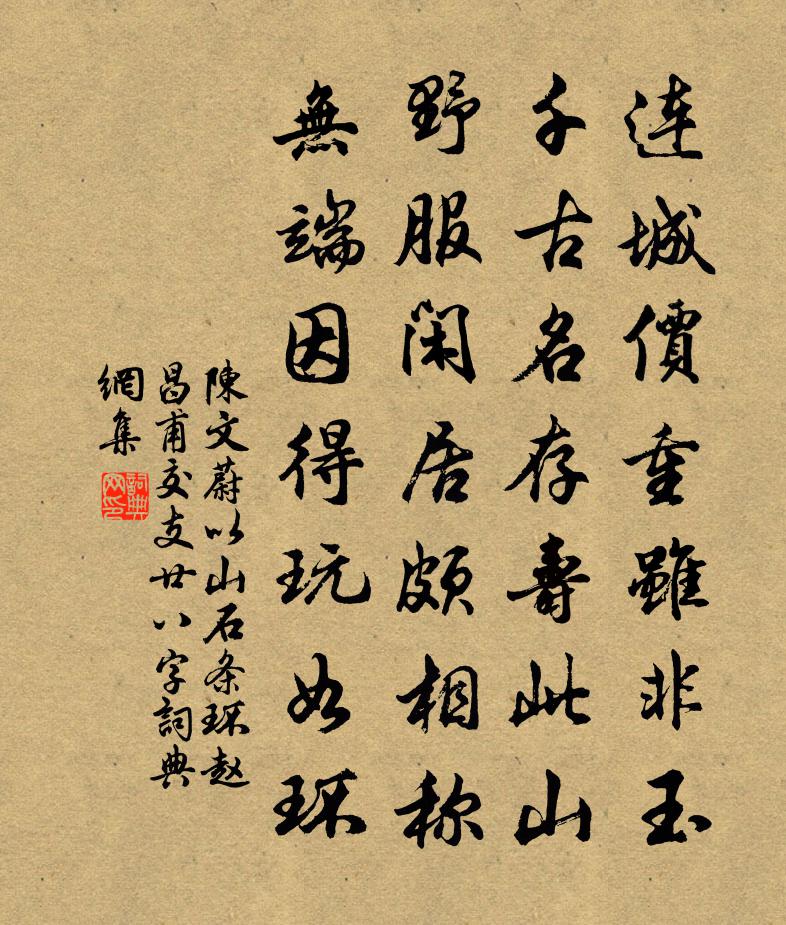 連城價重雖非玉
千古名存壽此山
野服閑居頗相称
無端因得玩如环
陳文蔚以山石条环赵
昌甫交支廿八字詞典
網集
詞典
网印